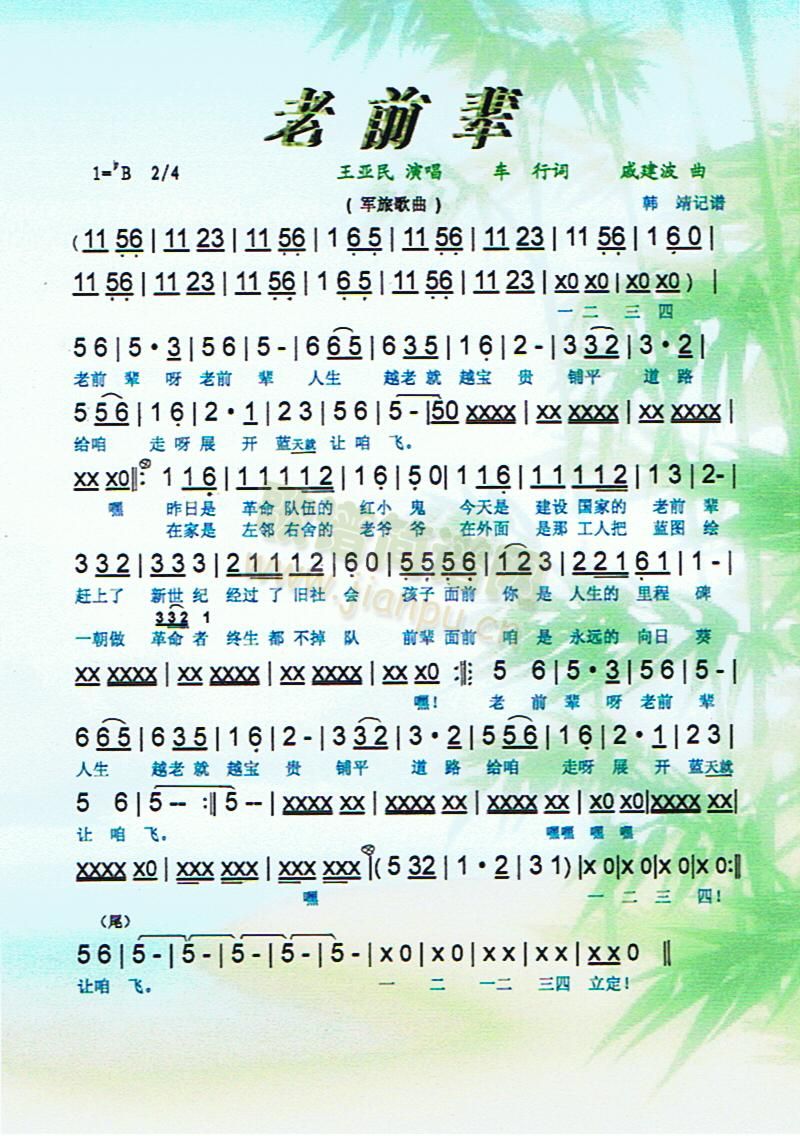 老前辈
1=♭B 2/4 王亚民 演唱 车 行词 戚建波 曲
(军旅歌曲) 韩 靖记谱
(11 56|11 23|11 56|1 6 5|11 56|11 23|11 56|1 6 0|
11 56|11 23|11 56|1 6 5|11 56|11 23|x0 x0|x0 x0)|
一 二 三 四
5 6|5·3|5 6|5-|6 65|6 35|1 6|2-|3 32|3·2|
老前 辈 呀 老前 辈 人生 越老 就 越宝 贵 铺平 道 路
5 56|1 6|2·1|2 3|5 6|5-|50 xxxx|xx xxxx|xx xxxx|
给咱 走 呀 展 开 蓝天就 让 咱 飞。
xx x0‖: 1 16|1 1 1 1 12|1 6|5 0|1 16|1 1 1 1 12|1 3|2-|
嘿 昨日是 革命 队伍的 红小 鬼 今天是 建设 国家的 老前 辈
在家是 左邻 右舍的 老爷 爷 在外面 是那 工人把 蓝图 绘
3 33 2|3 3 3|2 1 1 12|6 0|5 5 5 5|1 2 3|2 2 2 1 6 1|1-|
赶上了 新世 纪 经过 了 旧社 会 孩子 面前 你 是 人生的 里程 碑
3 32 1
一朝做 革命 者 终生 都 不掉 队 前辈 面前 咱 是 永远的 向日 葵
xx xxxx|xx xxxx|xx xxxx|xx x0 :‖: 5 6|5·3|5 6|5-|
嘿! 老 前 辈 呀 老前 辈
6 65|6 35|1 6|2-|3 32|3·2|5 56|1 6|2·1|2 3|
人生 越老 就 越宝 贵 铺平 道 路 给咱 走呀 展 开 蓝天就
5 6|5-- :‖5--|xxxx xx|xxxx xx|x0 x0|xxxx xx|
让 咱 飞。 嘿嘿 嘿 嘿
xxxx x0|xxx xxx|xxx xxx|(5 32|1·2|3 1)|x 0|x 0|x 0|x 0:‖
嘿 一 二 三 四!
(尾)
5 6|5-|5-|5-|5-|5-|x 0|x 0|x x|x x|x x 0‖
让咱 飞。 一 二 一二 三四 立定!